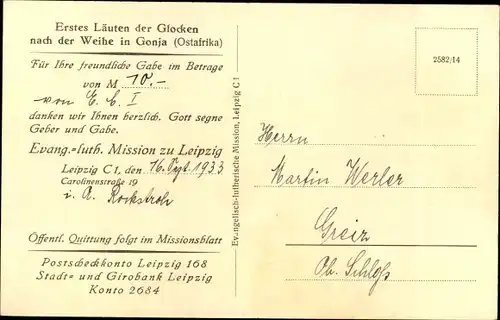 Erstes Läuten der Glocken
nach der Weihe in Gonja (Ostafrika)
Für Ihre freundliche Gabe im Betrage
von M 10.-
von E. C. I
danken wir Ihnen herzlich. Gott segne
Geber und Gabe.
Evang.=luth. Mission zu Leipzig
Leipzig C 1, den 16. Sept. 1933
Carolinenstraße 19
i. A. Rockstroh
Öffentl. Quittung folgt im Missionsblatt
Postscheckkonto Leipzig 168
Stadt= und Girobank Leipzig
Konto 2684
Evangelisch-lutherische Mission, Leipzig C 1
2582/14
Herrn
Martin Werler
Greiz
Ob. Schloß